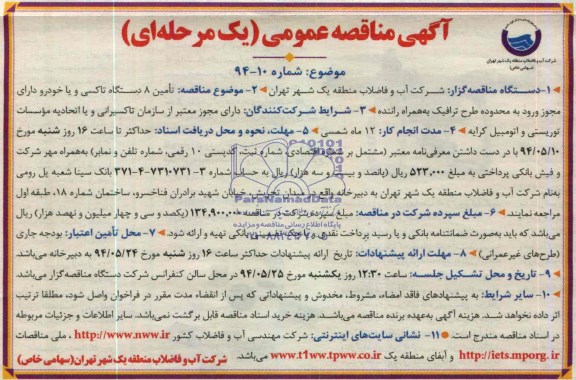 آگهی مناقصه عمومی (یک مرحله‌ای)
شرکت آب و فاضلاب منطقه یک شهر تهران
(سهامی خاص)
موضوع: شماره ۱۰-۹۴
۱-دستگاه مناقصه‌گزار: شرکت آب و فاضلاب منطقه یک شهر تهران ۲- موضوع مناقصه: تأمین ۸ دستگاه تاکسی و یا خودرو دارای
مجوز ورود به محدوده طرح ترافیک به‌همراه راننده ۳- شرایط شرکت‌کنندگان: دارای مجوز معتبر از سازمان تاکسیرانی و یا اتحادیه مؤسسات
توریستی و اتومبیل کرایه ۴- مدت انجام کار: ۱۲ ماه شمسی ۵- مهلت، نحوه و محل دریافت اسناد: حداکثر تا ساعت ۱۶ روز شنبه مورخ
۹۴/۰۵/۱۰ با در دست داشتن معرفی‌نامه معتبر (مشتمل بر شماره اقتصادی، شماره ثبت، کدپستی ۱۰ رقمی، شماره تلفن و نمابر) به‌همراه مهر شرکت
و فیش بانکی پرداختی به مبلغ ۵۲۳,۰۰۰ ریال (پانصد و بیست و سه هزار) ریال به حساب شماره ۳-۷۳۱۰۷۳۱-۴-۳۷۱ بانک سینا شعبه پل رومی
به‌نام شرکت آب و فاضلاب منطقه یک شهر تهران به دبیرخانه واقع در میدان تجریش، خیابان شهید برادران فناخسرو، ساختمان شماره ۱۸، طبقه اول
مراجعه نمایند. ۶- مبلغ سپرده شرکت در مناقصه: مبلغ سپرده شرکت در مناقصه ۱۳۴,۹۰۰,۰۰۰ (یکصد و سی و چهار میلیون و نهصد هزار) ریال
می‌باشد که باید به‌صورت ضمانتنامه بانکی و یا رسید پرداخت نقدی و یا چک تضمینی بانکی تهیه و ارائه شود. ۷- محل تأمین اعتبار: بودجه جاری
(طرح‌های غیرعمرانی) ۸- مهلت ارائه پیشنهادات: تاریخ ارائه پیشنهادات حداکثر ساعت ۱۶ روز شنبه مورخ ۹۴/۰۵/۲۴ به دبیرخانه می‌باشد.
۹- تاریخ و محل تشکیل جلسه: ساعت ۱۲:۳۰ روز یکشنبه مورخ ۹۴/۰۵/۲۵ در محل سالن کنفرانس شرکت دستگاه مناقصه‌گزار می‌باشد.
۱۰- سایر شرایط: به پیشنهادهای فاقد امضاء، مشروط، مخدوش و پیشنهاداتی که پس از انقضاء مدت مقرر در فراخوان واصل شود، مطلقا ترتیب
اثر داده نخواهد شد. هزینه آگهی به‌عهده برنده مناقصه می‌باشد. هزینه خرید اسناد مناقصه قابل برگشت نمی‌باشد. سایر اطلاعات و جزئیات مربوطه
در اسناد مناقصه مندرج است. ۱۱- نشانی سایت‌های اینترنتی: شرکت مهندسی آب و فاضلاب کشور http://www.nww.ir ، ملی مناقصات
http://iets.mporg.ir و آبفای منطقه یک www.t1ww.tpww.co.ir می‌باشد.
شرکت آب و فاضلاب منطقه یک شهر تهران (سهامی خاص)
ParsNamadData
پایگاه اطلاع رسانی مناقصه و مزایده